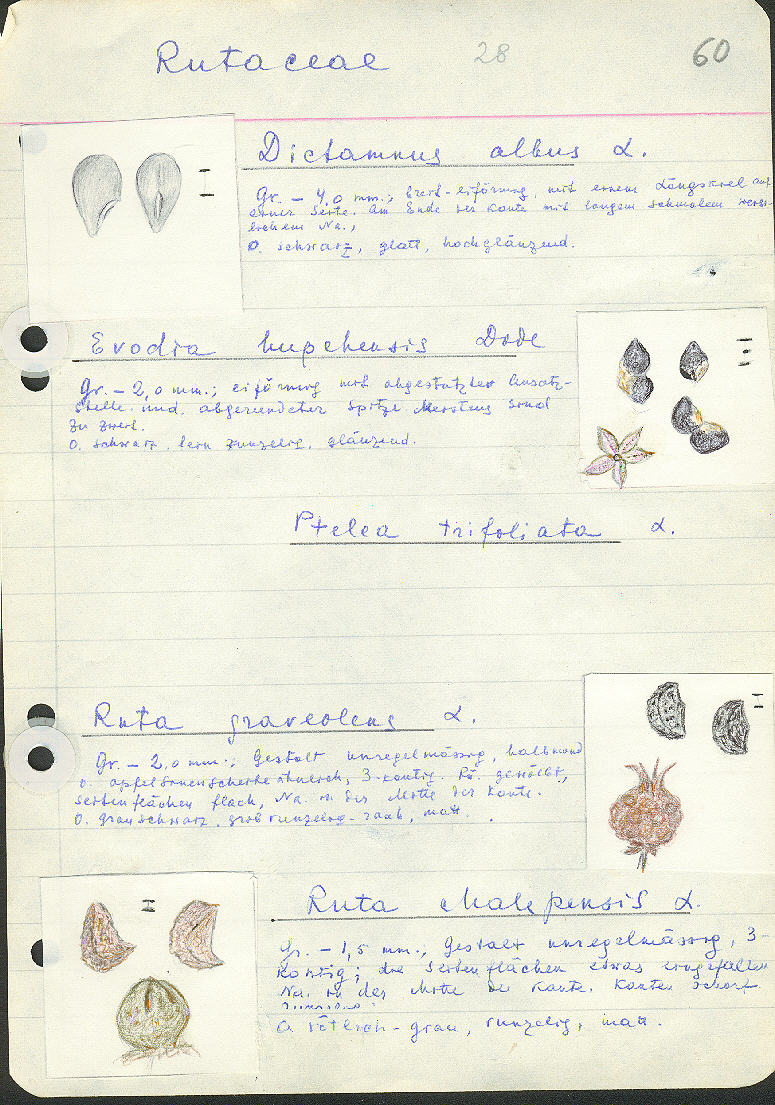 Rutaceae 28 60
Dictamnus albus L.
Gr. – 4,0 mm.; breit-eiförmig, mit einem Längskiel auf
einer Seite. Am Ende der Kante mit langem schmalem weiss-
lichem Na.,
O. schwarz, glatt, hochglänzend.
Evodia hupehensis Dode
Gr. – 2,0 mm.; eiförmig mit abgestutzter Ansatz-
stelle und abgerundeter Spitze. Meistens sind
zu zweit.
O. schwarz, fein runzelig, glänzend.
Ptelea trifoliata L.
Ruta graveolens L.
Gr. – 2,0 mm.; Gestalt unregelmässig, halbmond
o. apfelsinenscheibe ähnlich, 3-kantig. Rü. gewölbt,
Seitenflächen flach, Na. in der Mitte der Kante.
O. grauschwarz, grob runzelig-rauh, matt.
Ruta chalepensis L.
Gr. – 1,5 mm.; Gestalt unregelmässig, 3-
kantig; die Seitenflächen etwas eingefallen
Na. in der Mitte der Kante. Kanten scharf
O. rötlich-grau, runzelig, matt.